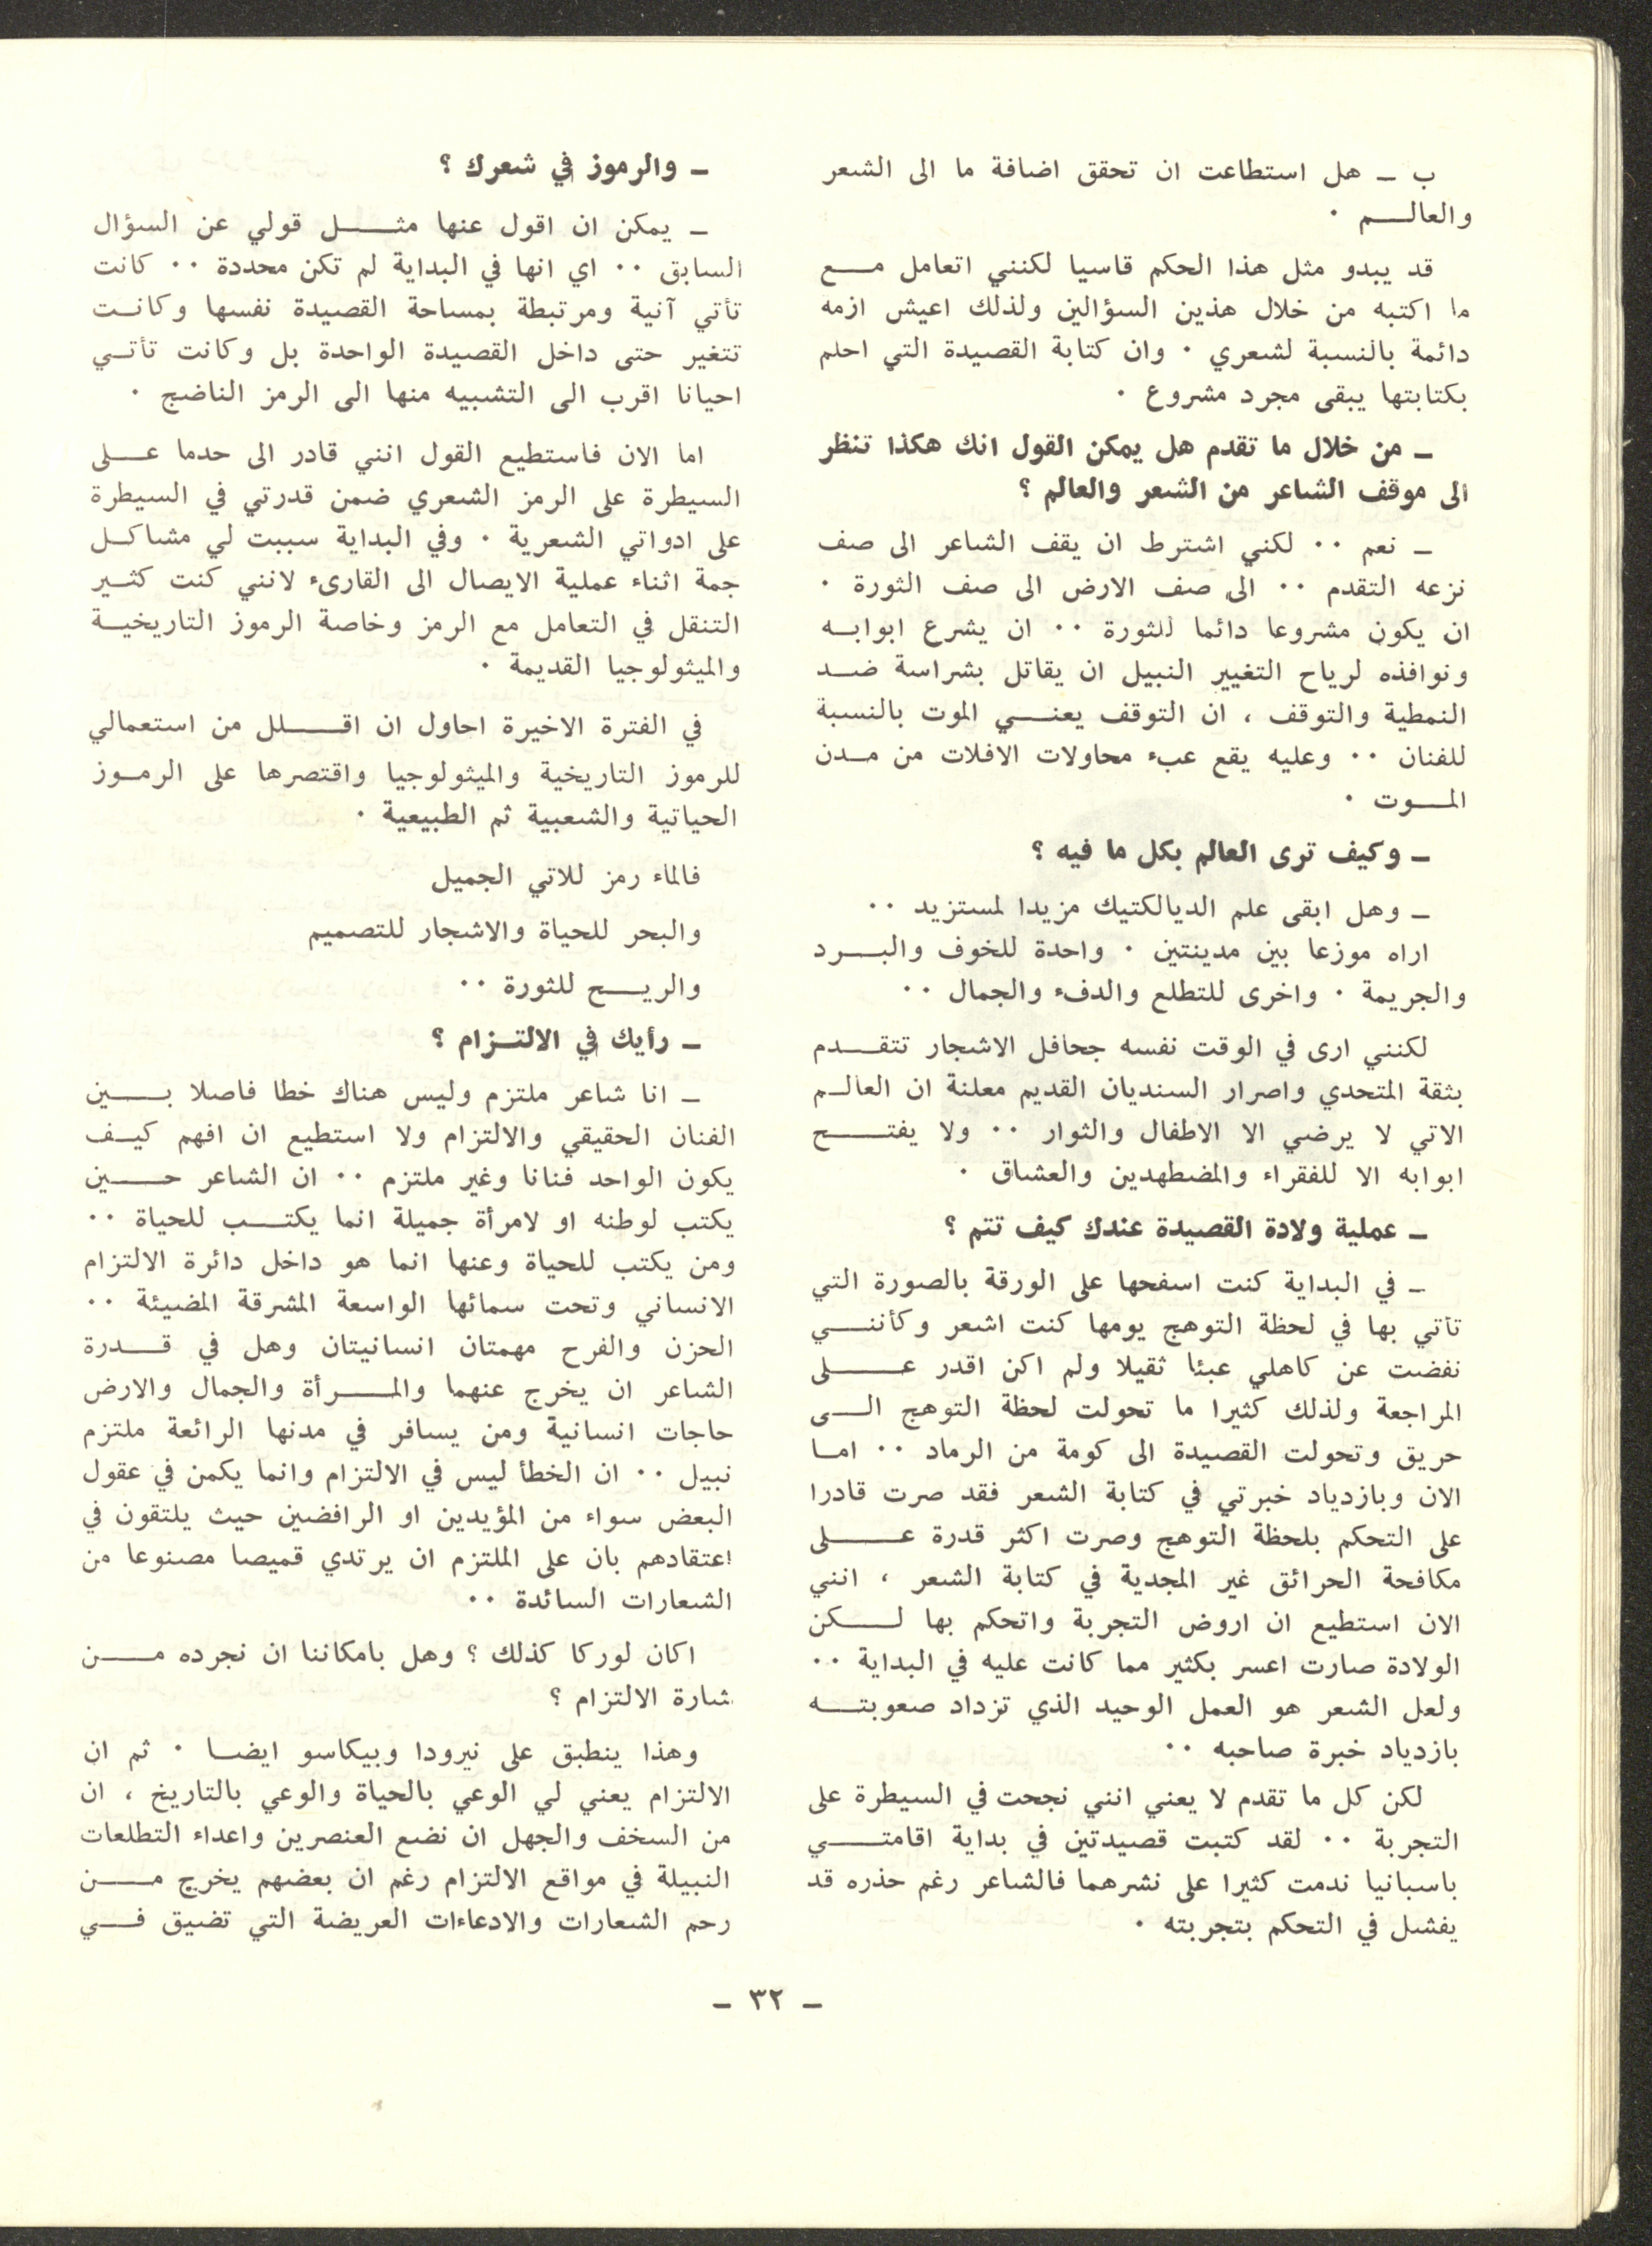 ب ــ هل استطاعت ان تحقق اضافة ما الى الشعر
والعالم ٠
قد يبدو مثل هذا الحكم قاسيا لكنني اتعامل مع
ما اكتبه من خلال هذين السؤالين ولذلك اعيش ازمه
دائمة بالنسبة لشعري ٠ وان كتابة القصيدة التي احلم
بكتابتها يبقى مجرد مشروع ٠
ــ من خلال ما تقدم هل يمكن القول انك هكذا تنظر
الى موقف الشاعر من الشعر والعالم ؟
ــ نعم ٠٠ لكني اشترط ان يقف الشاعر الى صف
نزعه التقدم ٠٠ الى صف الارض الى صف الثورة ٠
ان يكون مشروعا دائما للثورة ٠٠ ان يشرع ابوابه
ونوافذه لرياح التغيير النبيل ان يقاتل بشراسة ضد
النمطية والتوقف ، ان التوقف يعني الموت بالنسبة
للفنان ٠٠ وعليه يقع عبء محاولات الافلات من مدن
الموت ٠
ــ وكيف ترى العالم بكل ما فيه ؟
ــ وهل ابقى علم الديالكتيك مزيدا لمستزيد ٠٠
اراه موزعا بين مدينتين ٠ واحدة للخوف والبرد
والجريمة ٠ واخرى للتطلع والدفء والجمال ٠٠
لكنني ارى في الوقت نفسه جحافل الاشجار تتقدم
بثقة المتحدي واصرار السنديان القديم معلنة ان العالم
الاتي لا يرضي الا الاطفال والثوار ٠٠ ولا يفتح
ابوابه الا للفقراء والمضطهدين والعشاق ٠
ــ عملية ولادة القصيدة عندك كيف تتم ؟
ــ في البداية كنت اسفحها على الورقة بالصورة التي
تأتي بها في لحظة التوهج يومها كنت اشعر وكأنني
نفضت عن كاهلي عبئا ثقيلا ولم اكن اقدر على
المراجعة ولذلك كثيرا ما تحولت لحظة التوهج الى
حريق وتحولت القصيدة الى كومة من الرماد ٠٠ اما
الان وبازدياد خبرتي في كتابة الشعر فقد صرت قادرا
على التحكم بلحظة التوهج وصرت اكثر قدرة على
مكافحة الحرائق غير المجدية في كتابة الشعر ، انني
الان استطيع ان اروض التجربة واتحكم بها لكن
الولادة صارت اعسر بكثير مما كانت عليه في البداية ٠٠
ولعل الشعر هو العمل الوحيد الذي تزداد صعوبته
بازدياد خبرة صاحبه ٠٠
لكن كل ما تقدم لا يعني انني نجحت في السيطرة على
التجربة ٠٠ لقد كتبت قصيدتين في بداية اقامتي
باسبانيا ندمت كثيرا على نشرهما فالشاعر رغم حذره قد
يفشل في التحكم بتجربته ٠
ــ والرموز في شعرك ؟
ــ يمكن ان اقول عنها مثل قولي عن السؤال
السابق ٠٠ اي انها في البداية لم تكن محددة ٠٠ كانت
تأتي آنية ومرتبطة بمساحة القصيدة نفسها وكانت
تتغير حتى داخل القصيدة الواحدة بل وكانت تأتي
احيانا اقرب الى التشبيه منها الى الرمز الناضج ٠
اما الان فاستطيع القول انني قادر الى حدما على
السيطرة على الرمز الشعري ضمن قدرتي في السيطرة
على ادواتي الشعرية ٠ وفي البداية سببت لي مشاكل
جمة اثناء عملية الايصال الى القارىء لانني كنت كثير
التنقل في التعامل مع الرمز وخاصة الرموز التاريخية
والميثولوجيا القديمة ٠
في الفترة الاخيرة احاول ان اقلل من استعمالي
للرموز التاريخية والميثولوجيا واقتصرها على الرموز
الحياتية والشعبية ثم الطبيعية ٠
فالماء رمز للاتي الجميل
والبحر للحياة والاشجار للتصميم
والريح للثورة ٠٠
ــ رأيك في الالتزام ؟
ــ انا شاعر ملتزم وليس هناك خطا فاصلا بين
الفنان الحقيقي والالتزام ولا استطيع ان افهم كيف
يكون الواحد فنانا وغير ملتزم ٠٠ ان الشاعر حين
يكتب لوطنه او لامرأة جميلة انما يكتب للحياة ٠٠
ومن يكتب للحياة وعنها انما هو داخل دائرة الالتزام
الانساني وتحت سمائها الواسعة المشرقة المضيئة ٠٠
الحزن والفرح مهمتان انسانيتان وهل في قدرة
الشاعر ان يخرج عنهما والمرأة والجمال والارض
حاجات انسانية ومن يسافر في مدنها الرائعة ملتزم
نبيل ٠٠ ان الخطأ ليس في الالتزام وانما يكمن في عقول
البعض سواء من المؤيدين او الرافضين حيث يلتقون في
اعتقادهم بان على الملتزم ان يرتدي قميصا مصنوعا من
الشعارات السائدة ٠٠
اكان لوركا كذلك ؟ وهل بامكاننا ان نجرده من
شارة الالتزام ؟
وهذا ينطبق على نيرودا وبيكاسو ايضا ٠ ثم ان
الالتزام يعني لي الوعي بالحياة والوعي بالتاريخ ، ان
من السخف والجهل ان نضع العنصرين واعداء التطلعات
النبيلة في مواقع الالتزام رغم ان بعضهم يخرج من
رحم الشعارات والادعاءات العريضة التي تضيق في
ــ ٣٢ ــ